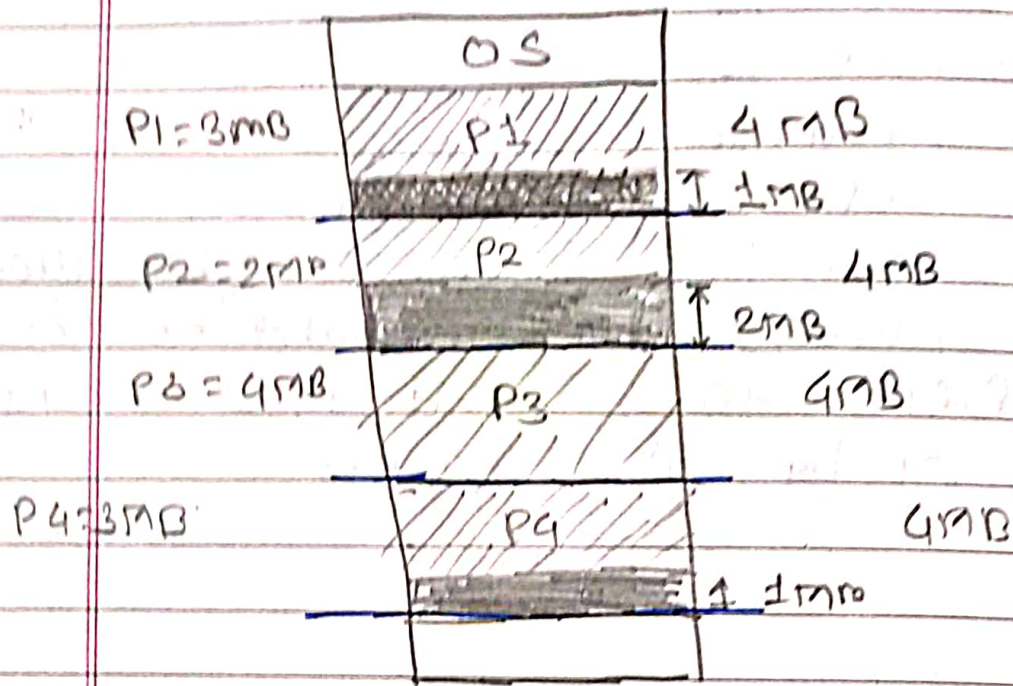 OS
P1 = 3MB P1 4MB
1MB
P2 = 2M P2 4MB
2MB
P3 = 4MB P3 4MB
P4 = 3MB P4 4MB
1